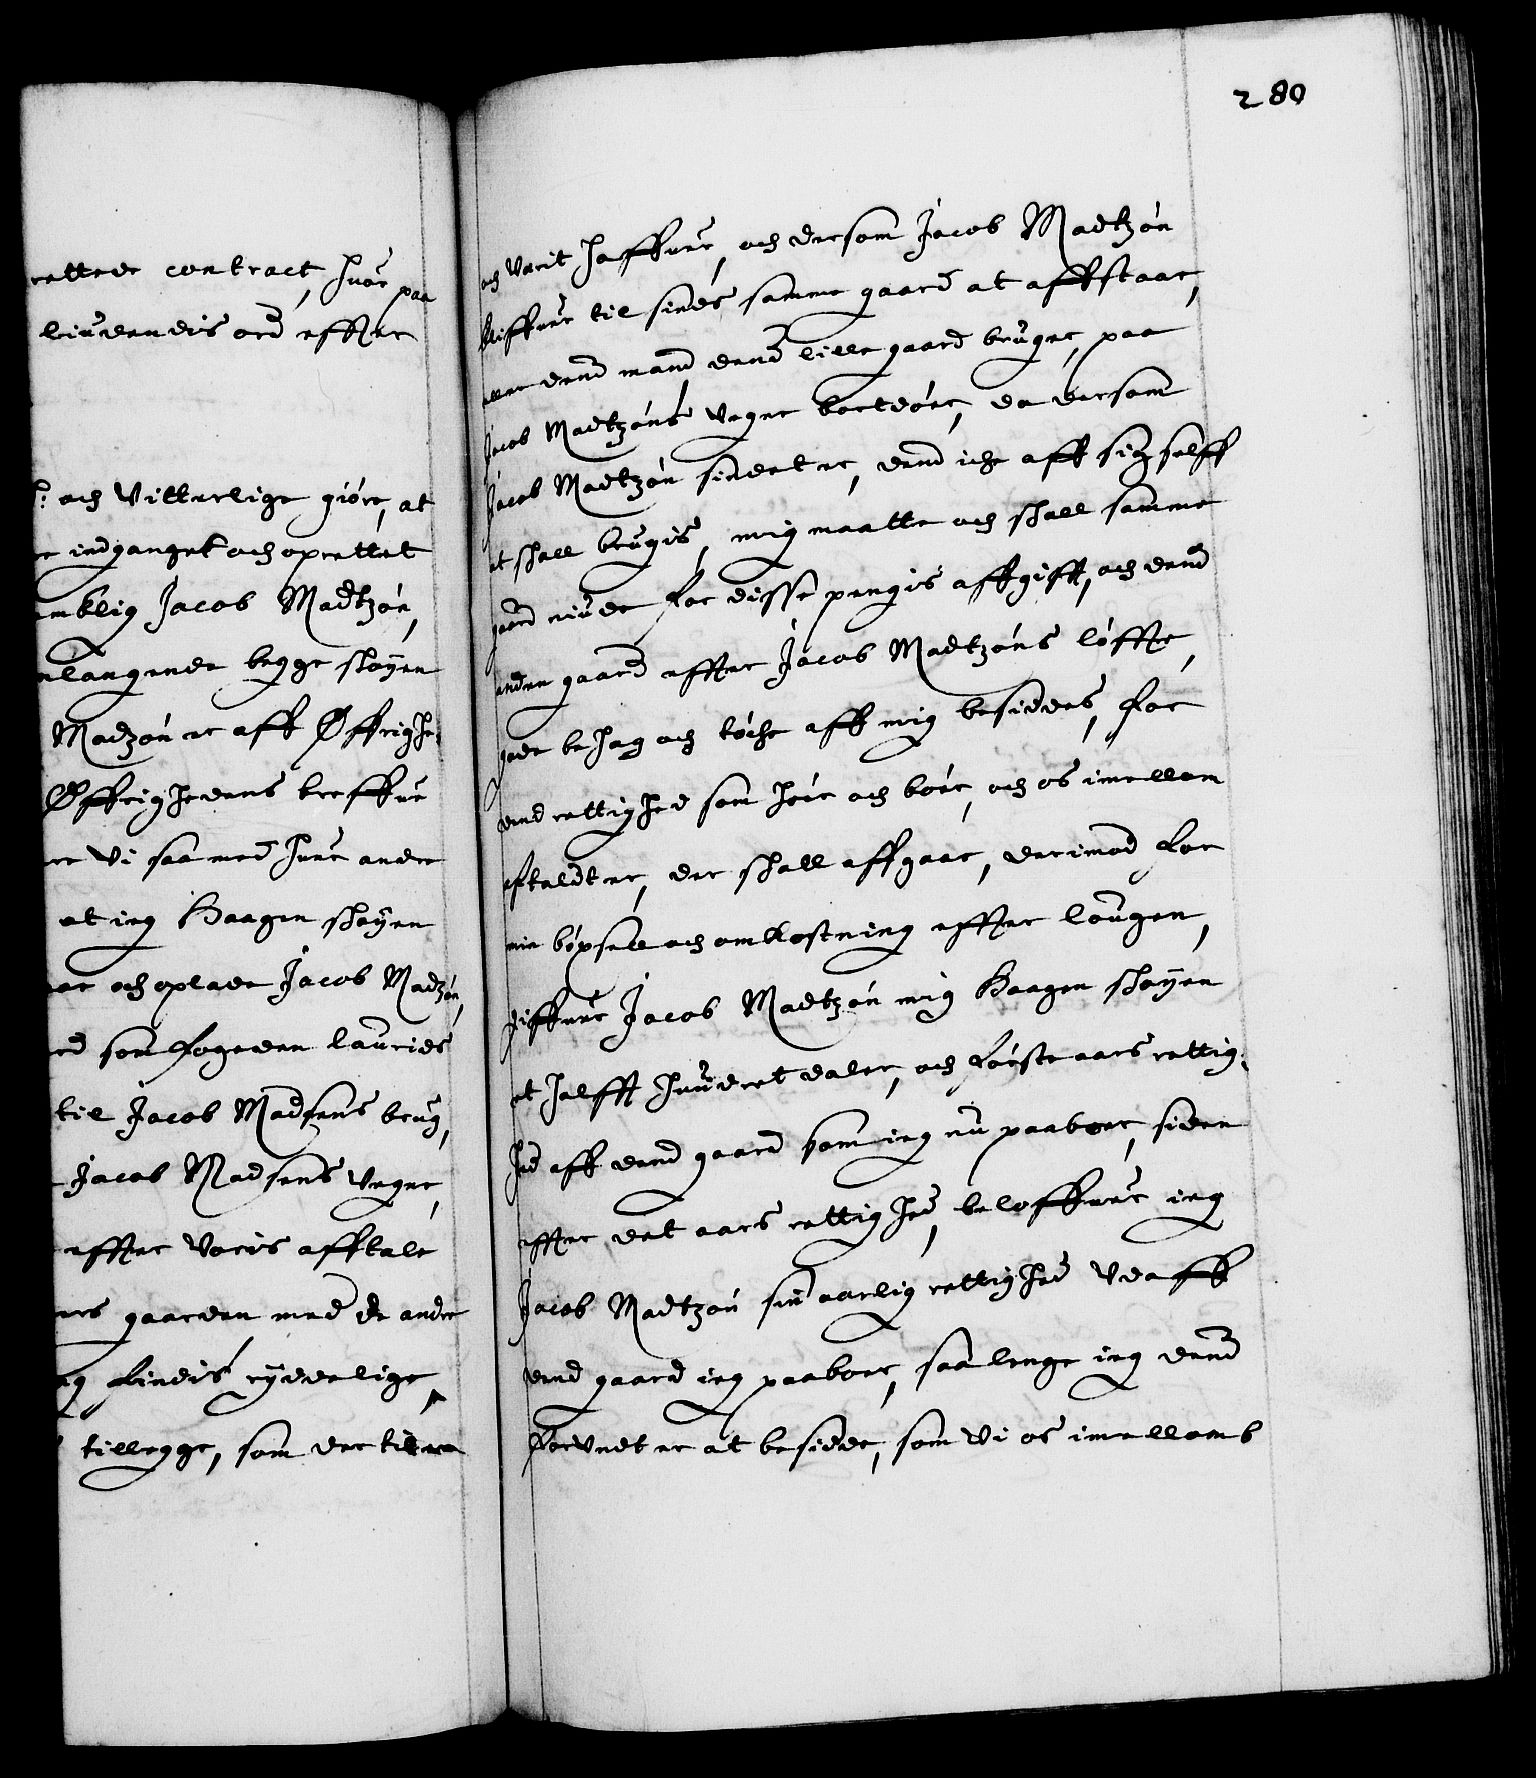 280
rettede contract, huor paa
liudendis ord effter
och Vitterlige giöre, at
indganget och oprettet
Jacob Madtzön,
anlangende begge skoyen
Madzön er aff Øffrighe:
Øffrighedens breffue
Vi saa med huer andre
at ieg Haagen skoyen
och oplade Jacob Madzön,
som fogeden lauridts
til Jacob Madsens brug,
Jacob Madsens Vegne,
effter Voris afftale
gaarden med de andre
findis ryddelige,
tillegge, som der til
och Varit haffuer, och dersom Jacob Madtzön
bliffuer til sinds samme gaard at affstaae,
eller dend mand dend lille gaard bruger, paa
Jacob Madtzöns Vegne bortdöer, da dersom
Jacob Madtzön sindet er, dend iche aff sig selff
at skall brugis, mig maatte och skall samme
gaard niude for disse pengis affgifft, och dend
anden gaard effter Jacob Madtzöns löffte,
gode behag och töche aff mig besiddes, for
dend rettighed som hör och bör, och os imellom
afftaldt er, der skall affgaae, derimod for
min böxsell och omkostning effter lougen,
giffuer Jacob Madtzön mig Haagen skoyen
et halfft hundret daler, och förste aars rettig:
hed aff dend gaard som ieg nu paaboer, siden
effter det aars rettighed, beloffuer ieg
Jacob Madtzön sin aarlig rettighed Vdaff
dend gaard ieg paaboer, saa lenge ieg dend
forundt er at besidde, som Vi os imellomb